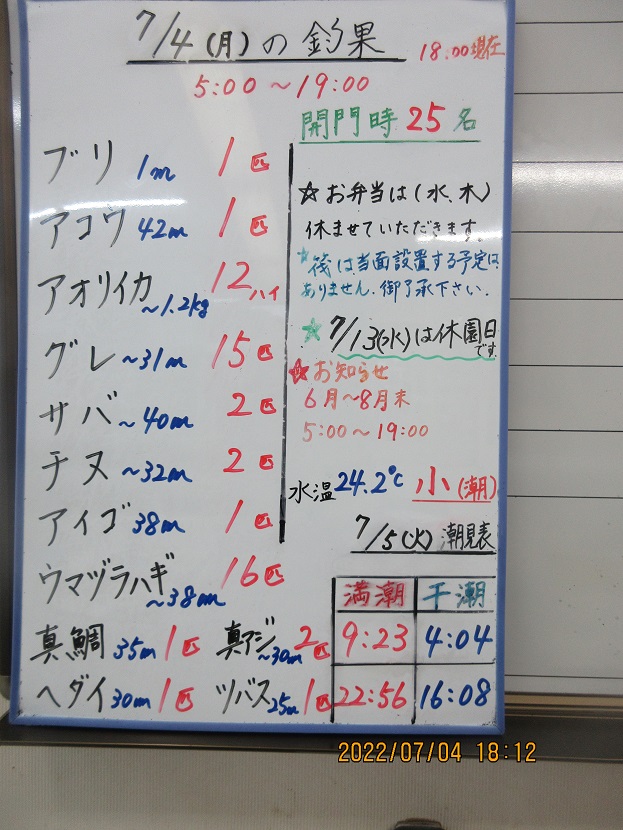 7/4(月)の釣果
18:00現在
5:00~19:00
開門時25名
ブリ 1m 1匹
アコウ 42cm 1匹
アオリイカ ~1.2kg 12ハイ
グレ ~31cm 15匹
サバ ~40cm 2匹
チヌ ~32cm 2匹
アイゴ 38cm 1匹
ウマヅラハギ ~38cm 16匹
真鯛 35cm 1匹
真アジ ~30cm 2匹
ヘダイ 30cm 1匹
ツバス 25cm 1匹
☆お弁当は(水、木)
休ませていただきます。
☆筏は当面設置する予定は、
ありません。御了承下さい。
☆7/13(水)は休園日
です。
☆お知らせ
6月~8月末
5:00~19:00
水温24.2℃ 小(潮)
7/5(火)潮見表
満潮 干潮
9:23 4:04
22:56 16:08
2022/07/04 18:12